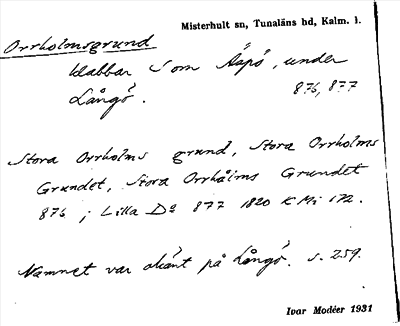 Misterhult sn, Tunaläns hd, Kalm. l.
Orrholmsgrund
klabbar S om Äspö, under
Långö. 876, 877
Stora Orrholms grund, Stora Orrholms
Grundet, Stora Orrhålms Grundet
876 ; Lilla Do 877 1820 K Mi 172.
Namnet var okänt på Långö. s. 259.
Ivar Modéer 1931